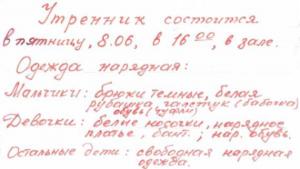 Утренник состоится
в пятницу, 8.06, в 16 00, в зале.
Одежда нарядная:
Мальчики: брюки темные, белая
рубашка, галстук (бабочка)
обувь (туфли)
Девочки: белые носочки, нарядное
платье, бант; нар. обувь.
Остальные дети: свободная нарядная
одежда.